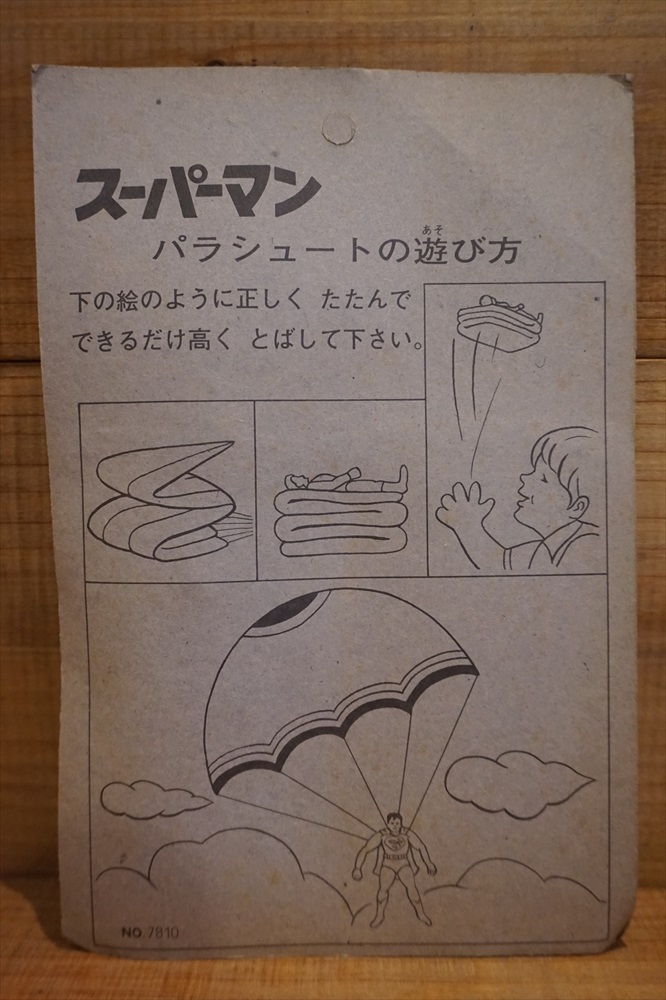 スーパーマン
パラシュートの遊び方
あそ
下の絵のように正しく たたんで
できるだけ高く とばして下さい。
NO.7810